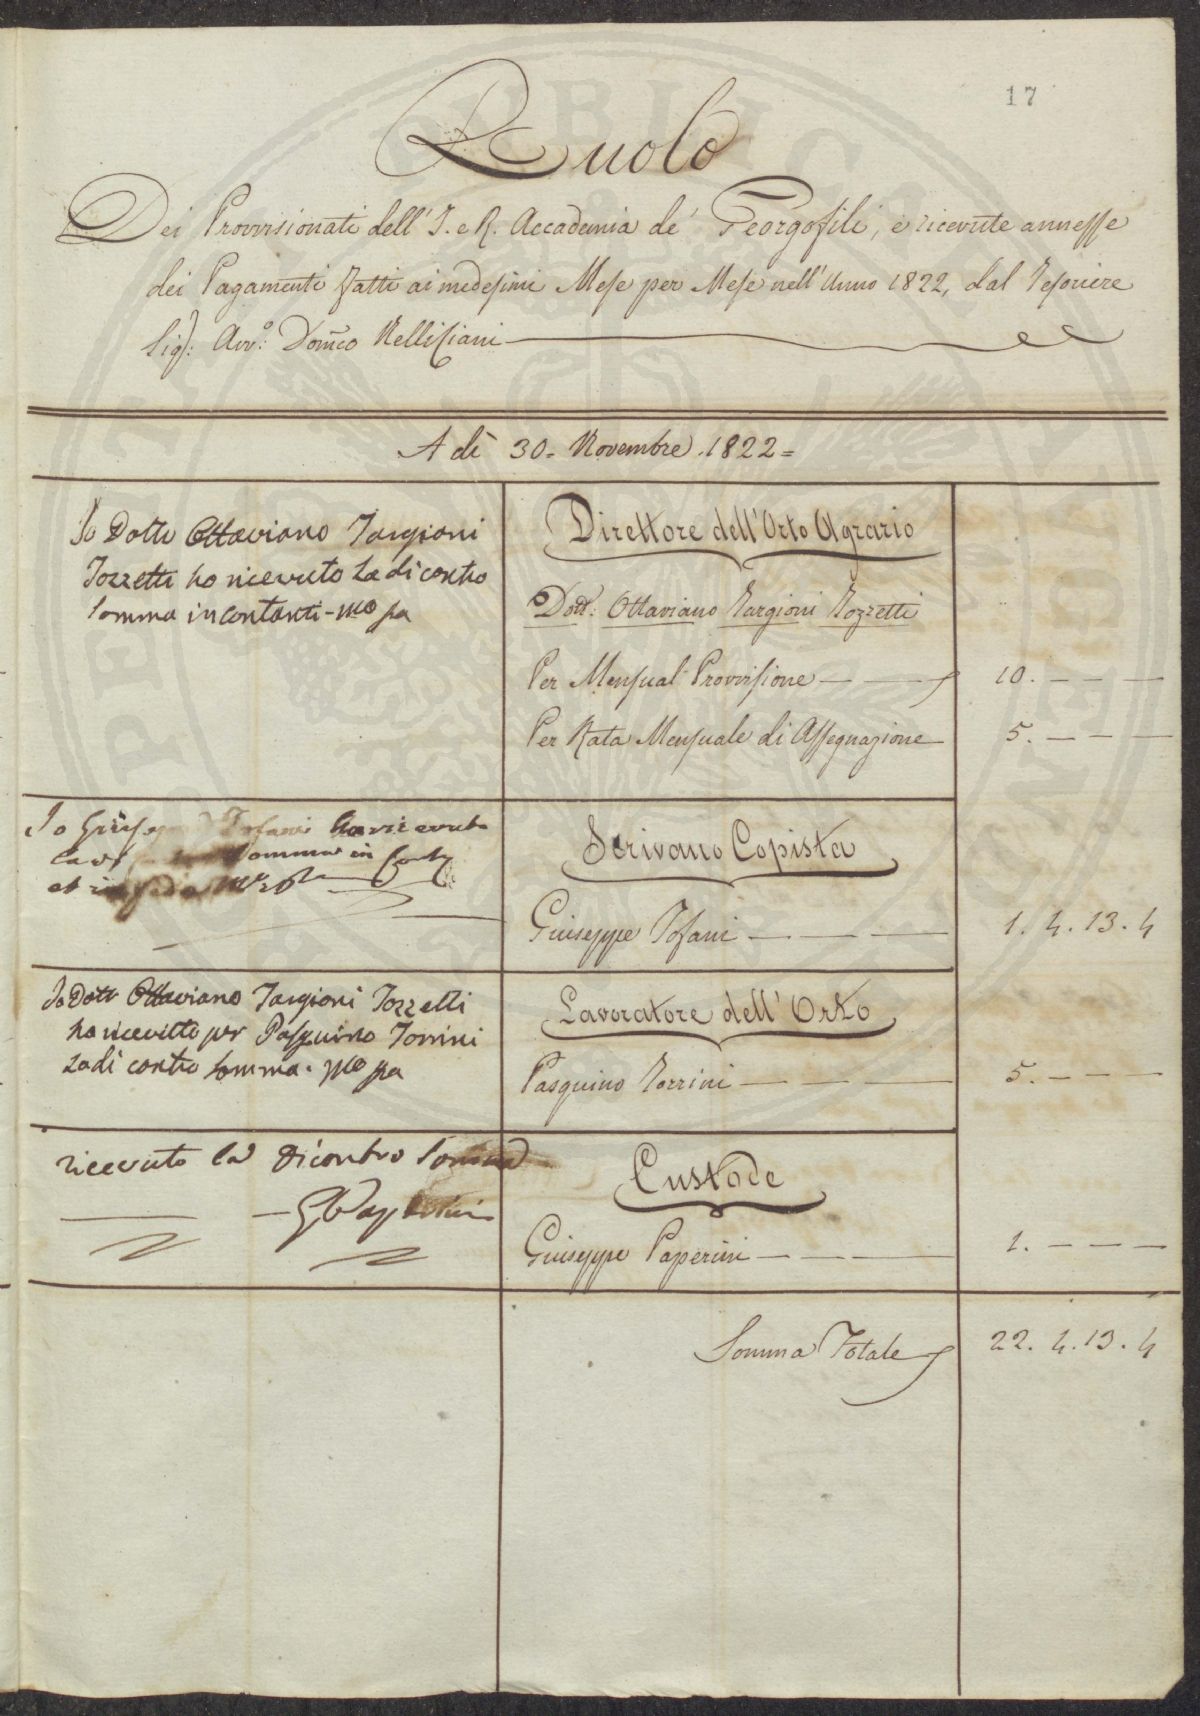 17
Ruolo
Dei Provvisionati dell' I. e R. Accademia de' Georgofili, e ricevute annesse
dei Pagamenti fatti ai medesimi Mese per Mese nell' Anno 1822, dal Tesoriere
Sig.: Avv.o Dom.co Nellisiani
A dì 30. Novembre 1822 =
Io Dotte Ottaviano Targioni
Tozzetti ho ricevuto la di contro
somma in contanti - mo pa
Direttore dell' Orto Agrario
Dott: Ottaviano Targioni Tozzetti
Per Mensual Provvisione 10. — — —
Per Rata Mensuale di Assegnazione 5. — — —
Io Giuseppe Tofani ho ricevuto
la somma in
et in fede
Scrivano Copista
Giuseppe Tofani — — — 1. 4. 13. 4
Io Dotte Ottaviano Targioni Tozzetti
ho ricevuto per Pasquino Torrini
la di contro somma. mo pa
Lavoratore dell' Orto
Pasquino Torrini — — — 5. — — —
ricevuto la dicontro somma
G Paperini
Custode
Giuseppe Paperini — — — 1. — — —
Somma Totale 22. 4. 13. 4